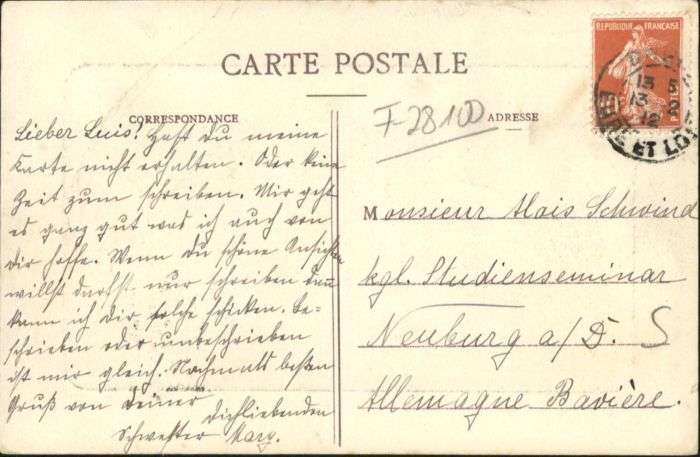 CARTE POSTALE
CORRESPONDANCE
Lieber Luis! Hast du meine
Karte nicht erhalten. Oder keine
Zeit zum schreiben. Mir geht
es ganz gut was ich auch von
dir hoffe. Wenn du schöne Ansichten
willst darfst nur schreiben dann
kann ich dir solche schicken. Be-
schrieben oder unbeschrieben
ist mir gleich. Nochmals besten
Gruß von deiner
dichliebenden
Schwester Marg.
F-28100
ADRESSE
Monsieur Alois Schwind
kgl. Studienseminar
Neuburg a/D. S
Allemagne Bavière.
REPUBLIQUE FRANÇAISE
10
POSTES
13 5
13 2
12
EURE ET LOIR